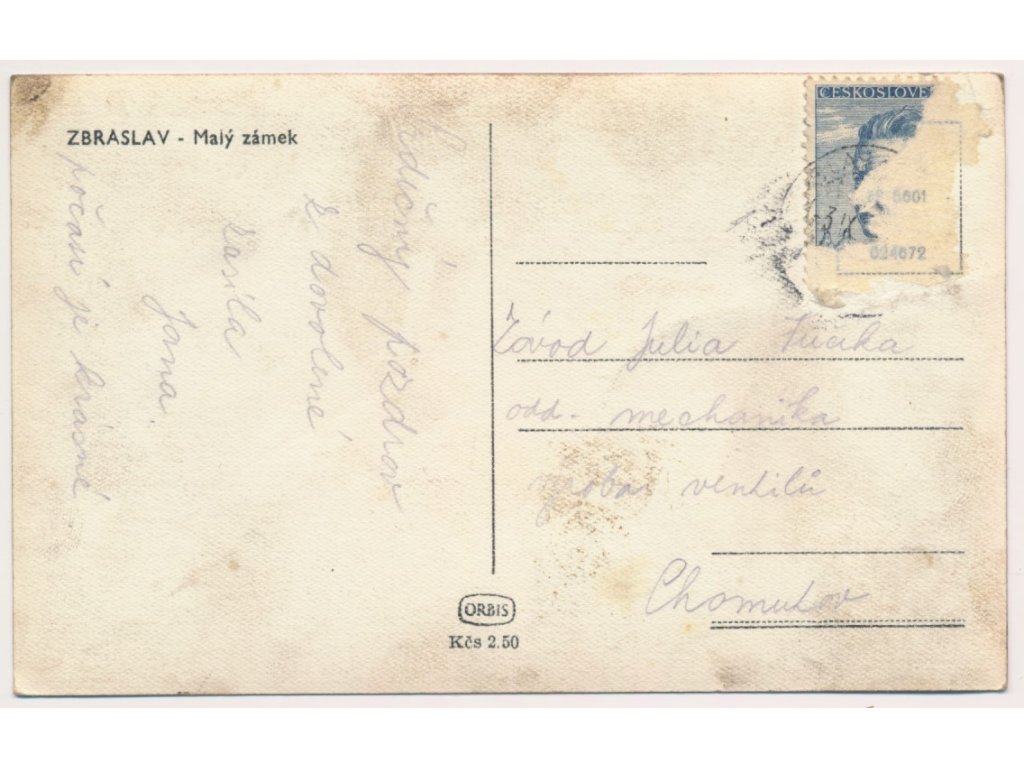 ZBRASLAV - Malý zámek
Srdečný pozdrav
z dovolené
zasílá
Jana.
počasí je krásné
ČESKOSLOVE
6601
024672
Závod Julia Fučíka
odd. mechanika
výroba ventilů
Chomutov
ORBIS
Kčs 2.50